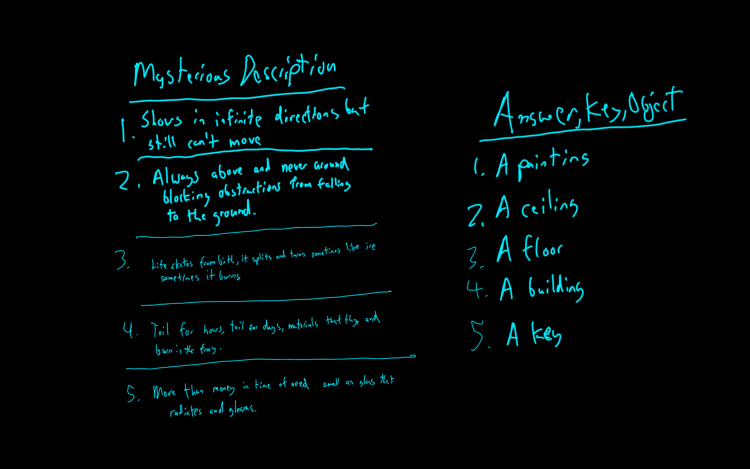 Mysterious Description
1. Shows in infinite directions but
still can't move
2. Always above and never around
blocking obstructions from falling
to the ground.
3. Like skates from birth, it splits and turns sometimes like ice
sometimes it burns
4. Toil for hours, toil for days, materials that fly, and
burn in the fray.
5. More than money in time of need small as glass that
radiates and gleams.
Answer, Key, Object
1. A painting
2. A ceiling
3. A floor
4. A building
5. A key